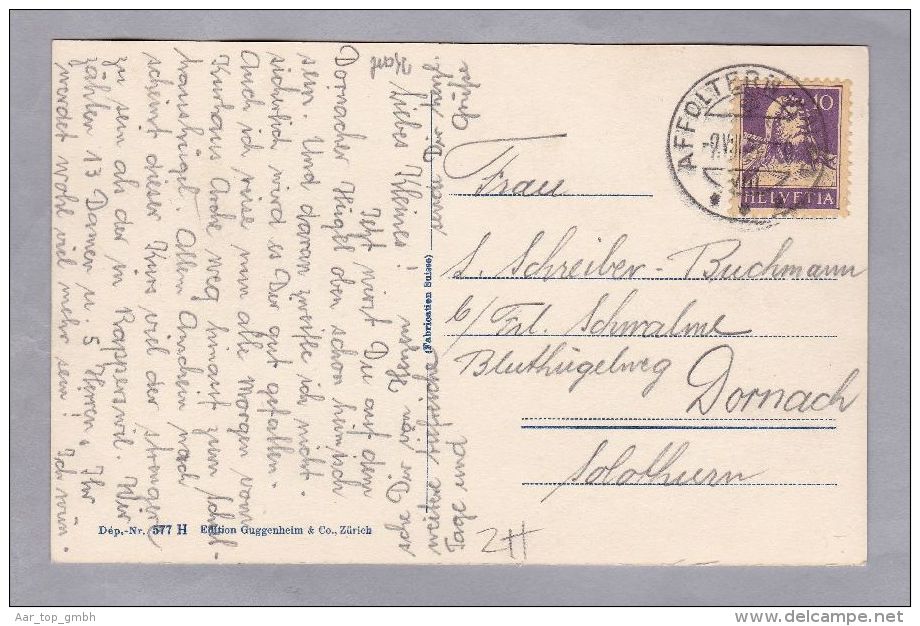 Liebes Kleines!
Jetzt wirst Du auf dem
Dornacher Hügel oben schon heimisch
sein. Und daran zweifle ich nicht.
sicherlich wird es Dir gut gefallen.
Auch ich reise nun alle Morgen vom
Kurhaus Arche weg hinauf zum Schul-
haushügel. Allem Anschein nach
scheint dieser Kurs viel der strengere
zu sein als der in Rapperswil. Wir
zählen 13 Damen u. 5 Herren. Ihr
werdet wohl viel mehr sein! Ich wün-
sche Dir von Herzen
weitere lehrreiche
Tage und
sende Dir herzl.
Grüsse
Dép.-Nr. 577 H Edition Guggenheim & Co., Zürich
(Fabrication Suisse)
AFFOLTERN
10
HELVETIA
Frau
L. Schreiber-Buchmann
b/ Frl. Schwalme
Bluthügelweg
Dornach
Solothurn
2H
Aar_top_gmbh
www.delcampe.net